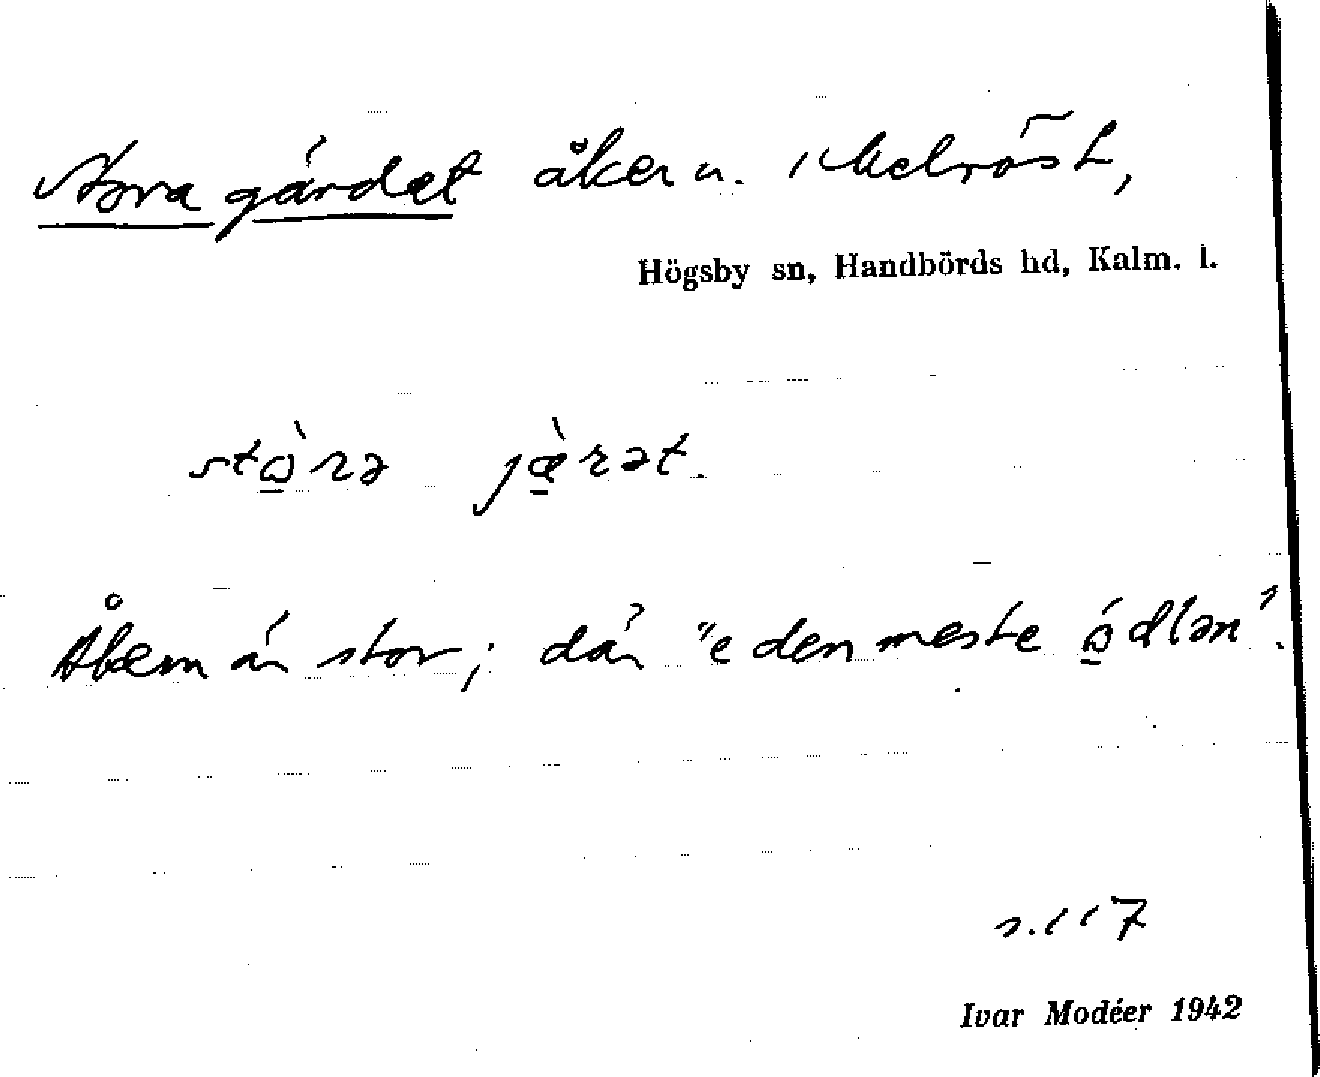 Stora gärdet åker n. i Melröst,
Högsby sn, Handbörds hd, Kalm. l.
stὼ̱rə jæ̱̀rət.
Åkern är stor; där "e den meste ώ̱dlən".
s. 117
Ivar Modéer 1942